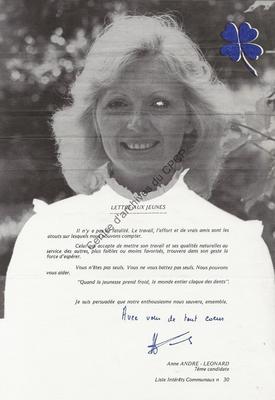 LETTRE AUX JEUNES
Il n'y a pas de fatalité. Le travail, l'effort et de vrais amis sont les
atouts sur lesquels nous pouvons compter.
Celui qui accepte de mettre son travail et ses qualités naturelles au
service des autres, plus faibles ou moins favorisés, trouvera dans son geste la
force d'espérer.
Vous n'êtes pas seuls. Vous ne vous battez pas seuls. Nous pouvons
vous aider.
"Quand la jeunesse prend froid, le monde entier claque des dents".
Je suis persuadée que notre enthousiasme nous sauvera, ensemble.
Avec vous de tout coeur
Anne ANDRE - LEONARD
7ème candidate
Liste Intérêts Communaux n 30